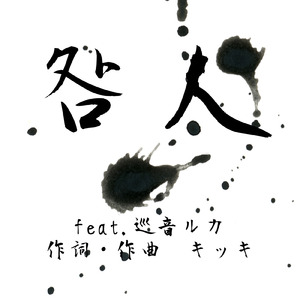 咎人
feat.巡音ルカ
作詞・作曲　キッキ